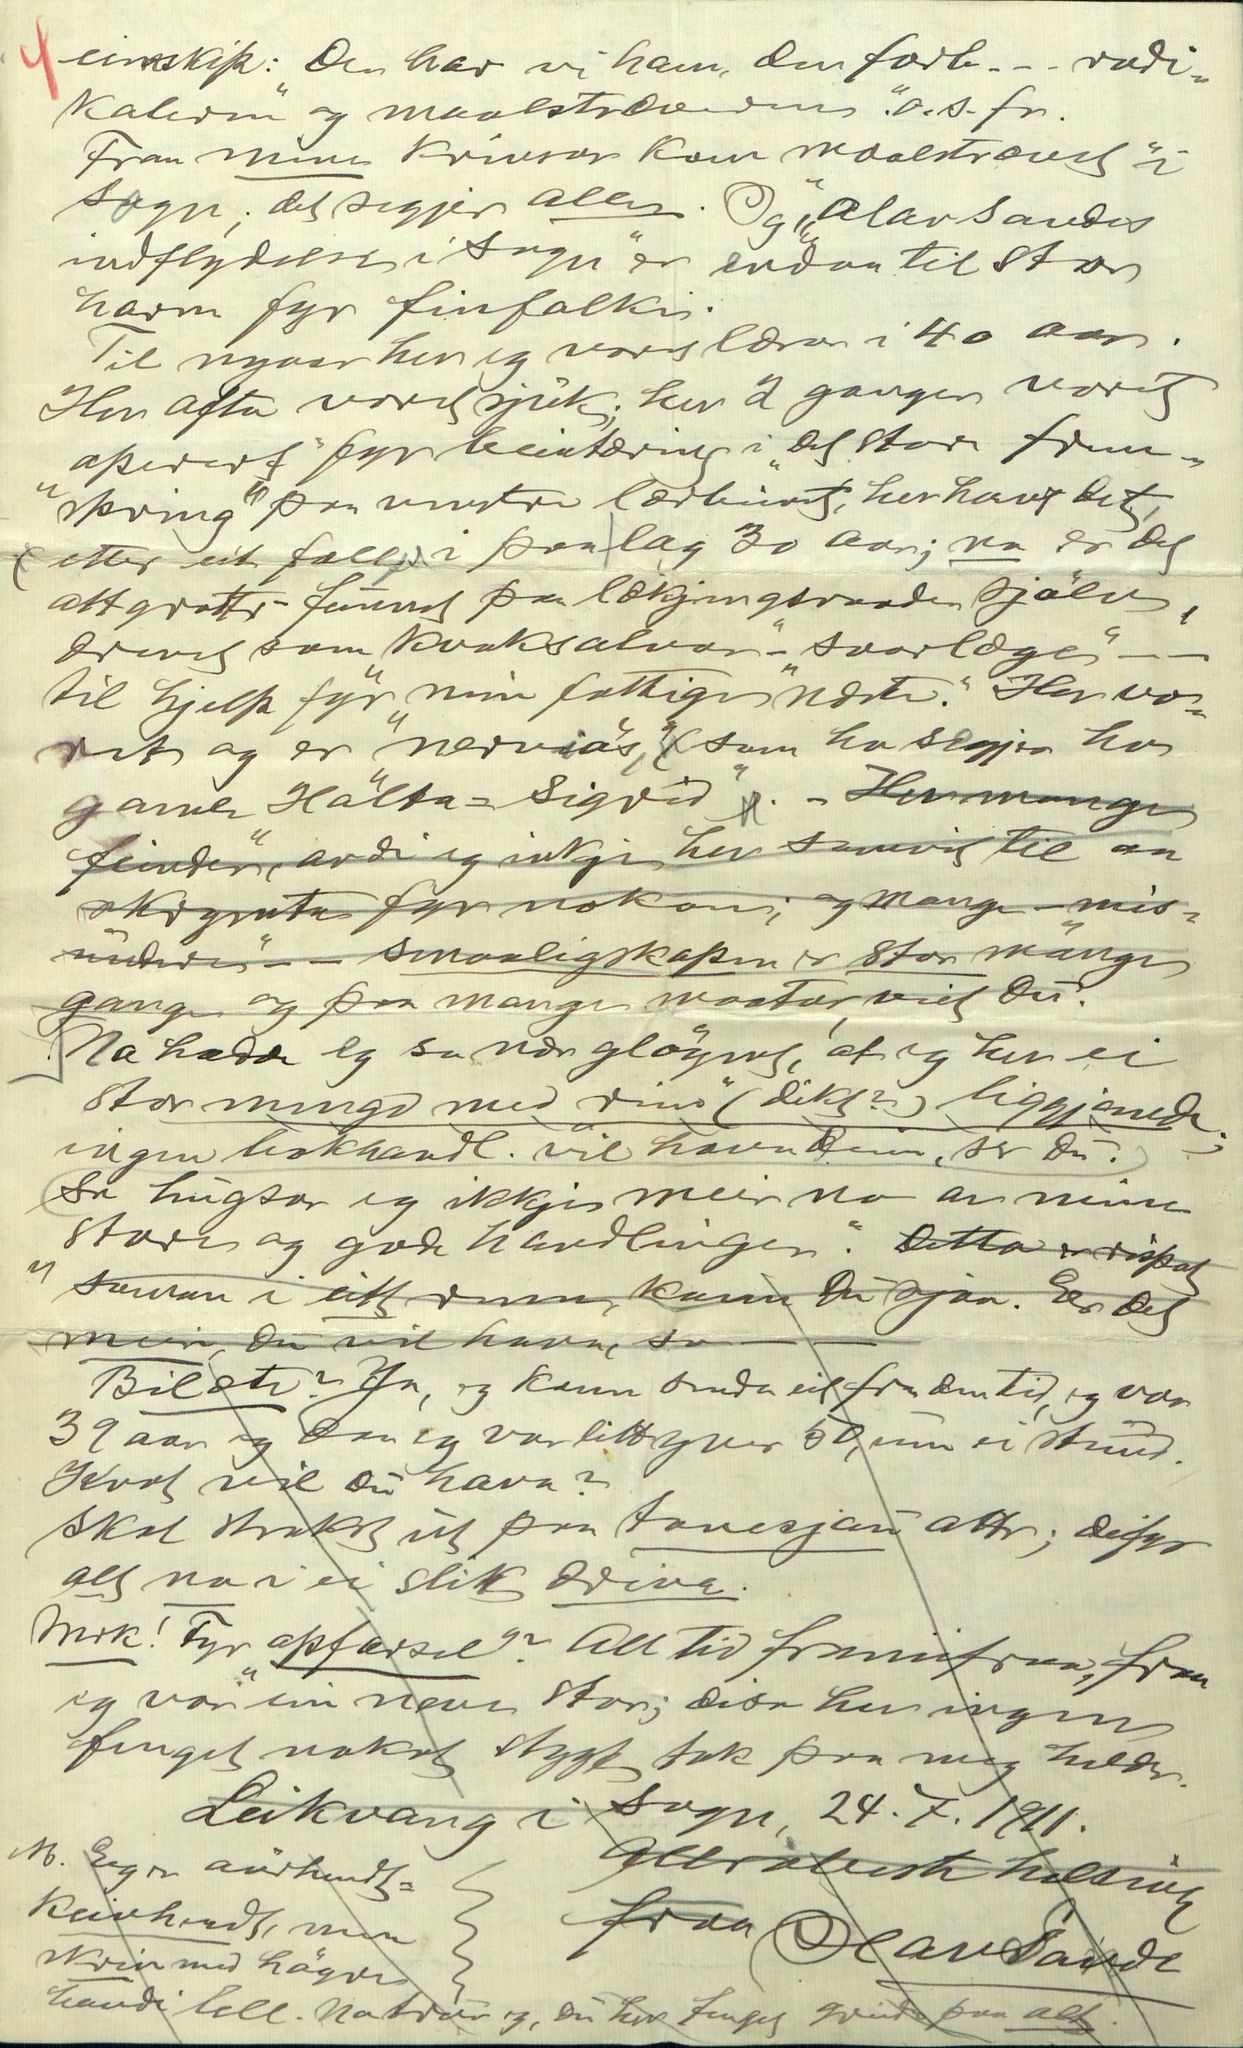 4 einskip: Den har vi ham, den forb--- radi-
kaleren" og maalstræverens" o.s.fr.
Fraa mine krinsar kom maalstrævet" i
Sogn, det segjer alle. Og "Olav Sandes
indflydelse i Sogn" er endaa til stor
harm fyr finfolki.
Til nyaar hev eg voret lærar i 40 aar.
Hev ofta voret sjuk; hev 2 gonger voret
operert" fyr beintæring i "det store frem-
"spring" paa venstre lærbeinet, hev havt det,
(etter eit fall) i paalag 30 aar; no er det
attgrott - funnet paa lækjingsraadi sjølv,
drivet som kvaksalvar - "svartlæge" --
til hjelp fyr "min fattige næste." Hev vo-
ret og er "nerviøs", (som ho segjer ho
gamle Hølta-Sigrid"). - Hev mange
feinder", avdi eg inkje hev samvit til aa
skrynta fyr nokon; og mange - mis-
undere" -- smaaligskapen er stor mange
gonger og paa mange maatar, veit du.
No hadde eg so nær gløymt, at eg hev ei
stor mengd med rim" (dikt?) liggjande;
ingen bokhandl. vil hava deim, ser du.
So hugsar eg ikkje meir no av mine
store og gode handlinger." Detta er rispat
"saman i eitt renn, kann du sjaa. Er det
meir, du vil hava, so ——
Bilæte? Ja, eg kann senda eit fraa den tid, eg var
39 aar og daa eg var litt yver 50, um ei stund.
Kvat vil du hava?
Skal straks ut paa tonesjau att; difyr
alt no i ei slik driva.
Mrk! Fyr opfarsel"? All tid framifraa, fraa
eg var "ein neve stor; disa hev ingen
fenget noket stygt tak paa meg heller.
Leikvang i Sogn, 24.7.1911.
Allra beste helsing
fraa Olav Sande
M. Eg er aurhendt=
keivhendt, men
skriv med høgre
handi lell. No trur eg, du hev fenget greide paa alt.